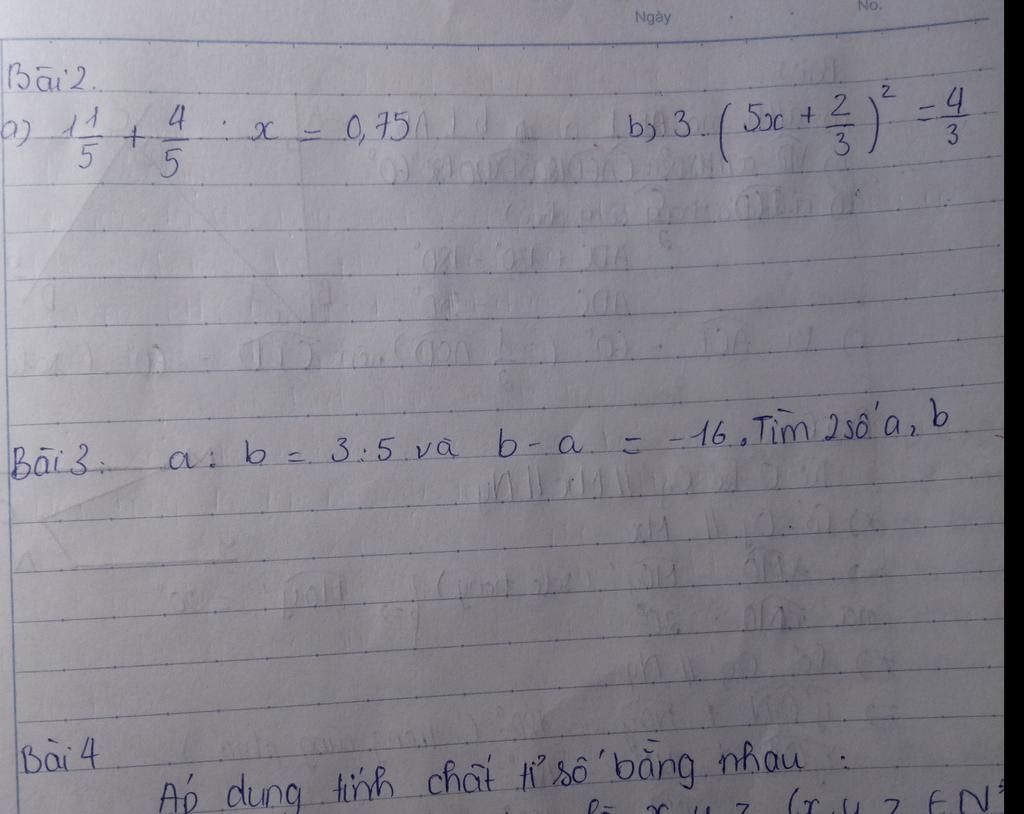 Ngày No.
Bài 2.
a) 1 1/5 + 4/5 : x = 0,75 b) 3. (5x + 2/3)² = 4/3
Bài 3: a : b = 3 : 5 và b - a = -16. Tìm 2 số a, b
Bài 4
Áp dụng tính chất tỉ số bằng nhau :